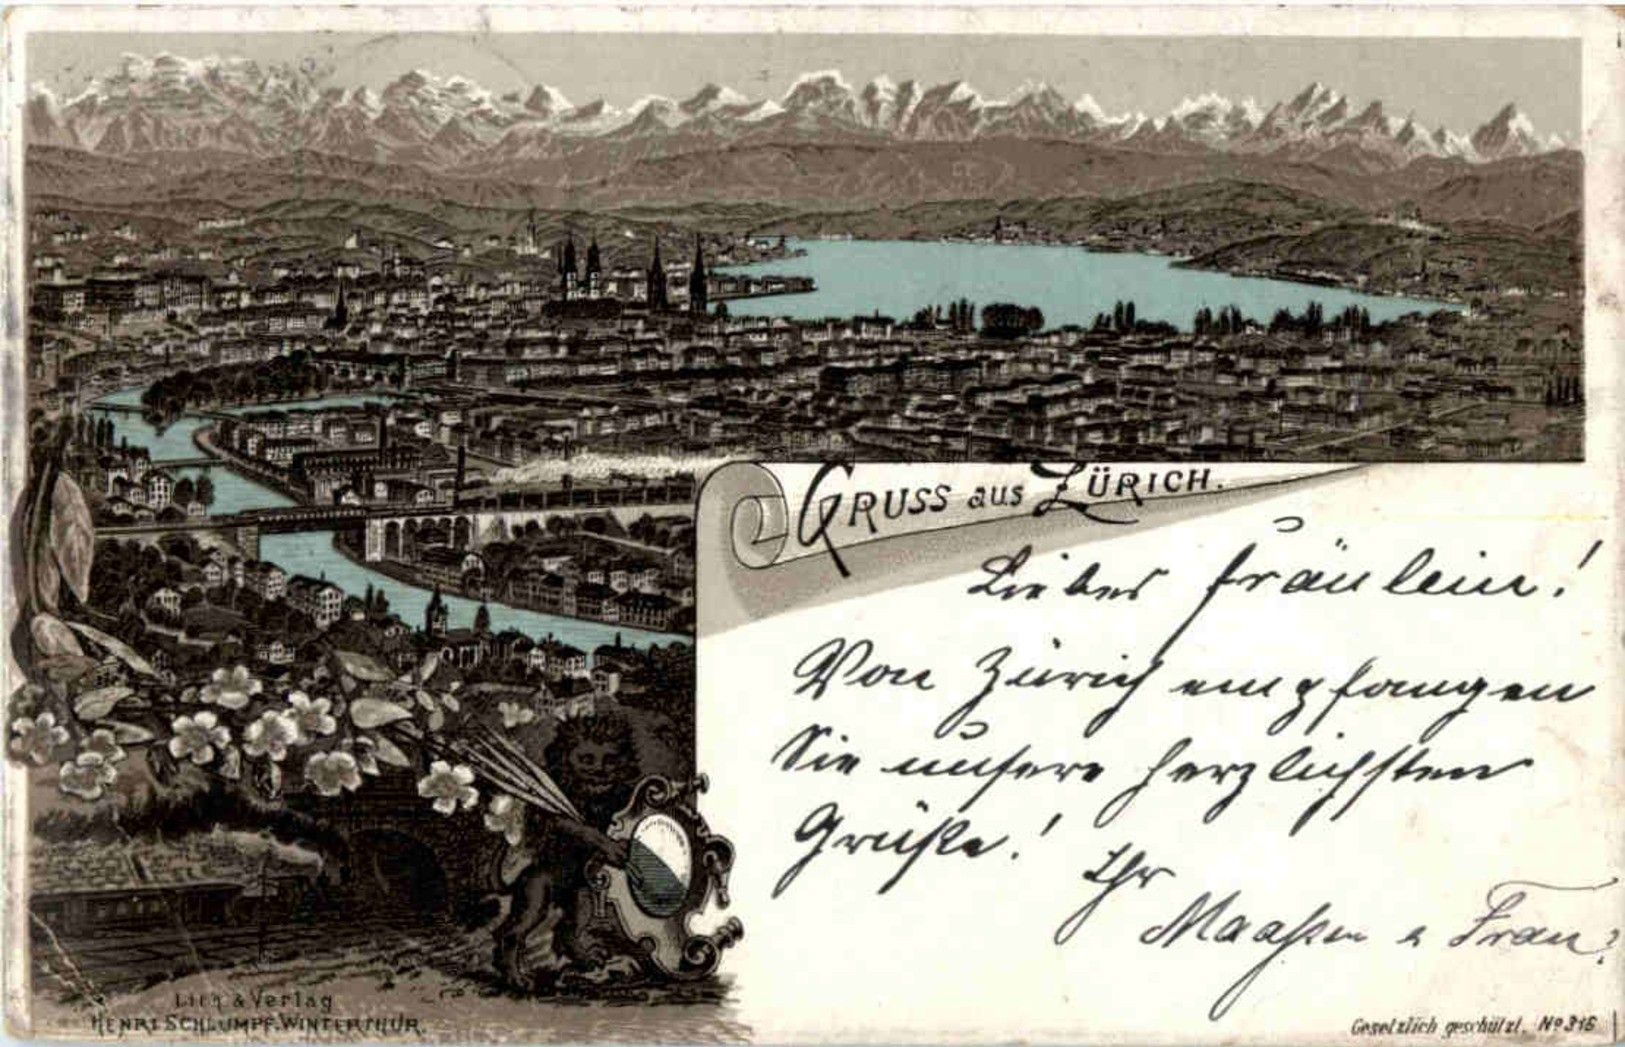 GRUSS aus ZÜRICH.
Liebes Fräulein!
Von Zürich empfangen
Sie unsere herzlichsten
Grüße!
Ihr
Maaßen u Frau
Lith & Verlag
HENRI SCHLUMPF. WINTERTHUR.
Gesetzlich geschützt. No 316